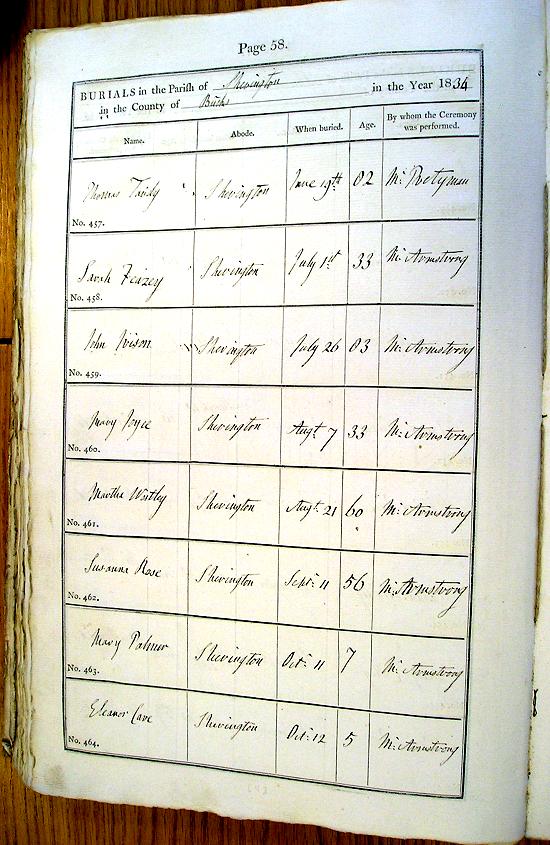 Page 58.
BURIALS in the Parish of Sherington in the Year 1834
in the County of Bucks
Name. Abode. When buried. Age. By whom the Ceremony was performed.
Thomas Tandy Sherington June 19th 82 Mr Pretyman
No. 457.
Sarah Feazey Sherington July 1st 33 Mr Armstrong
No. 458.
John Ivison Sherington July 26 83 Mr Armstrong
No. 459.
Mary Joyce Sherington Augt 7 33 Mr Armstrong
No. 460.
Martha Sherington Augt 21 60 Mr Armstrong
No. 461.
Susanna Rose Sherington Sept. 11 56 Mr Armstrong
No. 462.
Mary Palmer Sherington Oct. 11 7 Mr Armstrong
No. 463.
Eleanor Cave Sherington Oct. 12 5 Mr Armstrong
No. 464.